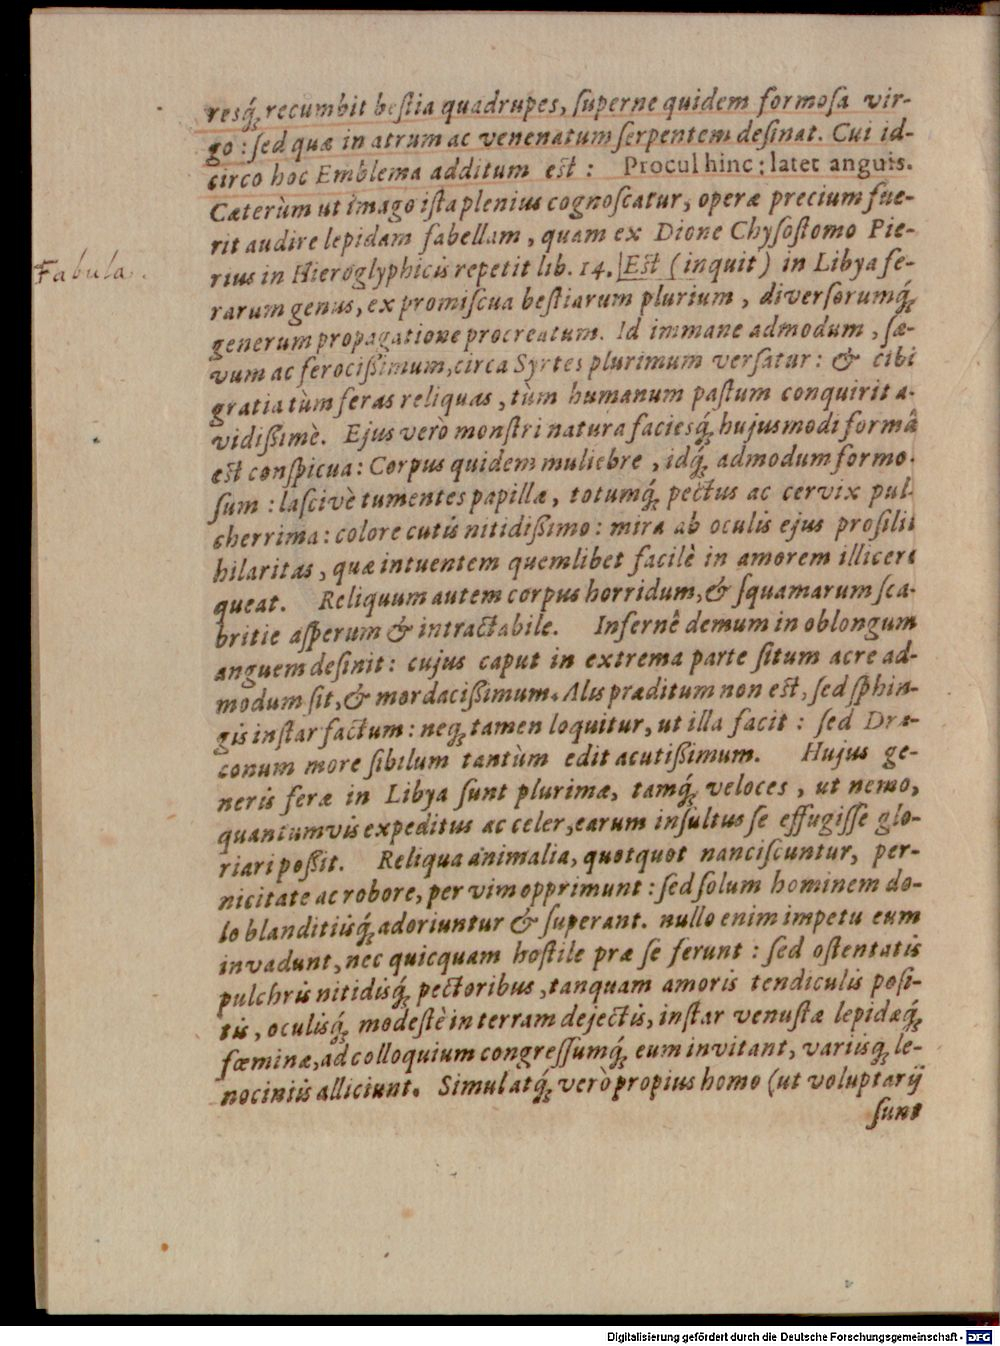 resq́; recumbit beſtia quadrupes, ſuperne quidem formoſa vir-
go: ſed quæ in atrum ac venenatum ſerpentem deſinat. Cui id-
circo hoc Emblema additum est: Procul hinc; latet anguis.
Cæterùm ut imago iſta plenius cognoſcatur, operæ precium fue-
rit audire lepidam fabellam, quam ex Dione Chyſoſtomo Pie-
Fabula.
rius in Hieroglyphicis repetit lib. 14. Est (inquit) in Libya fe-
rarum genus, ex promiſcua beſtiarum plurium, diverſorumq́;
generum propagatione procreatum. Id immane admodum, ſæ-
vum ac ferocißimum, circa Syrtes plurimum verſatur: & cibi
gratia tùm feras reliquas, tùm humanum paſtum conquirit a-
vidißimè. Ejus verò monſtri natura faciesq́; hujusmodi formâ
est conſpicua: Corpus quidem muliebre, idq́; admodum formo-
ſum: laſcivè tumentes papillæ, totumq́; pectus ac cervix pul-
cherrima: colore cutis nitidißimo: mira ab oculis ejus proſilit
hilaritas, quæ intuentem quemlibet facilè in amorem illicere
queat. Reliquum autem corpus horridum, & ſquamarum ſca-
britie aſperum & intractabile. Infernê demum in oblongum
anguem deſinit: cujus caput in extrema parte ſitum acre ad-
modum ſit, & mordacißimum. Alis præditum non est, ſed ſphin-
gis inſtar factum: neq; tamen loquitur, ut illa facit: ſed Dra-
conum more ſibilum tantùm edit acutißimum. Hujus ge-
neris feræ in Libya ſunt plurimæ, tamq́; veloces, ut nemo,
quantumvis expeditus ac celer, earum inſultus ſe effugiſſe glo-
riari poßit. Reliqua animalia, quotquot nanciſcuntur, per-
nicitate ac robore, per vim opprimunt: ſed ſolum hominem do-
lo blanditiisq́; adoriuntur & ſuperant. nullo enim impetu eum
invadunt, nec quicquam hoſtile præ ſe ferunt: ſed oſtentatis
pulchris nitidisq́; pectoribus, tanquam amoris tendiculis poſi-
tis, oculisq́; modeſtè in terram dejectis, inſtar venuſtæ lepidæq́;
fœminæ, ad colloquium congreſſumq́; eum invitant, variisq; le-
nociniis alliciunt. Simulatq́; verò propius homo (ut voluptarij
ſunt
Digitalisierung gefördert durch die Deutsche Forschungsgemeinschaft - DFG